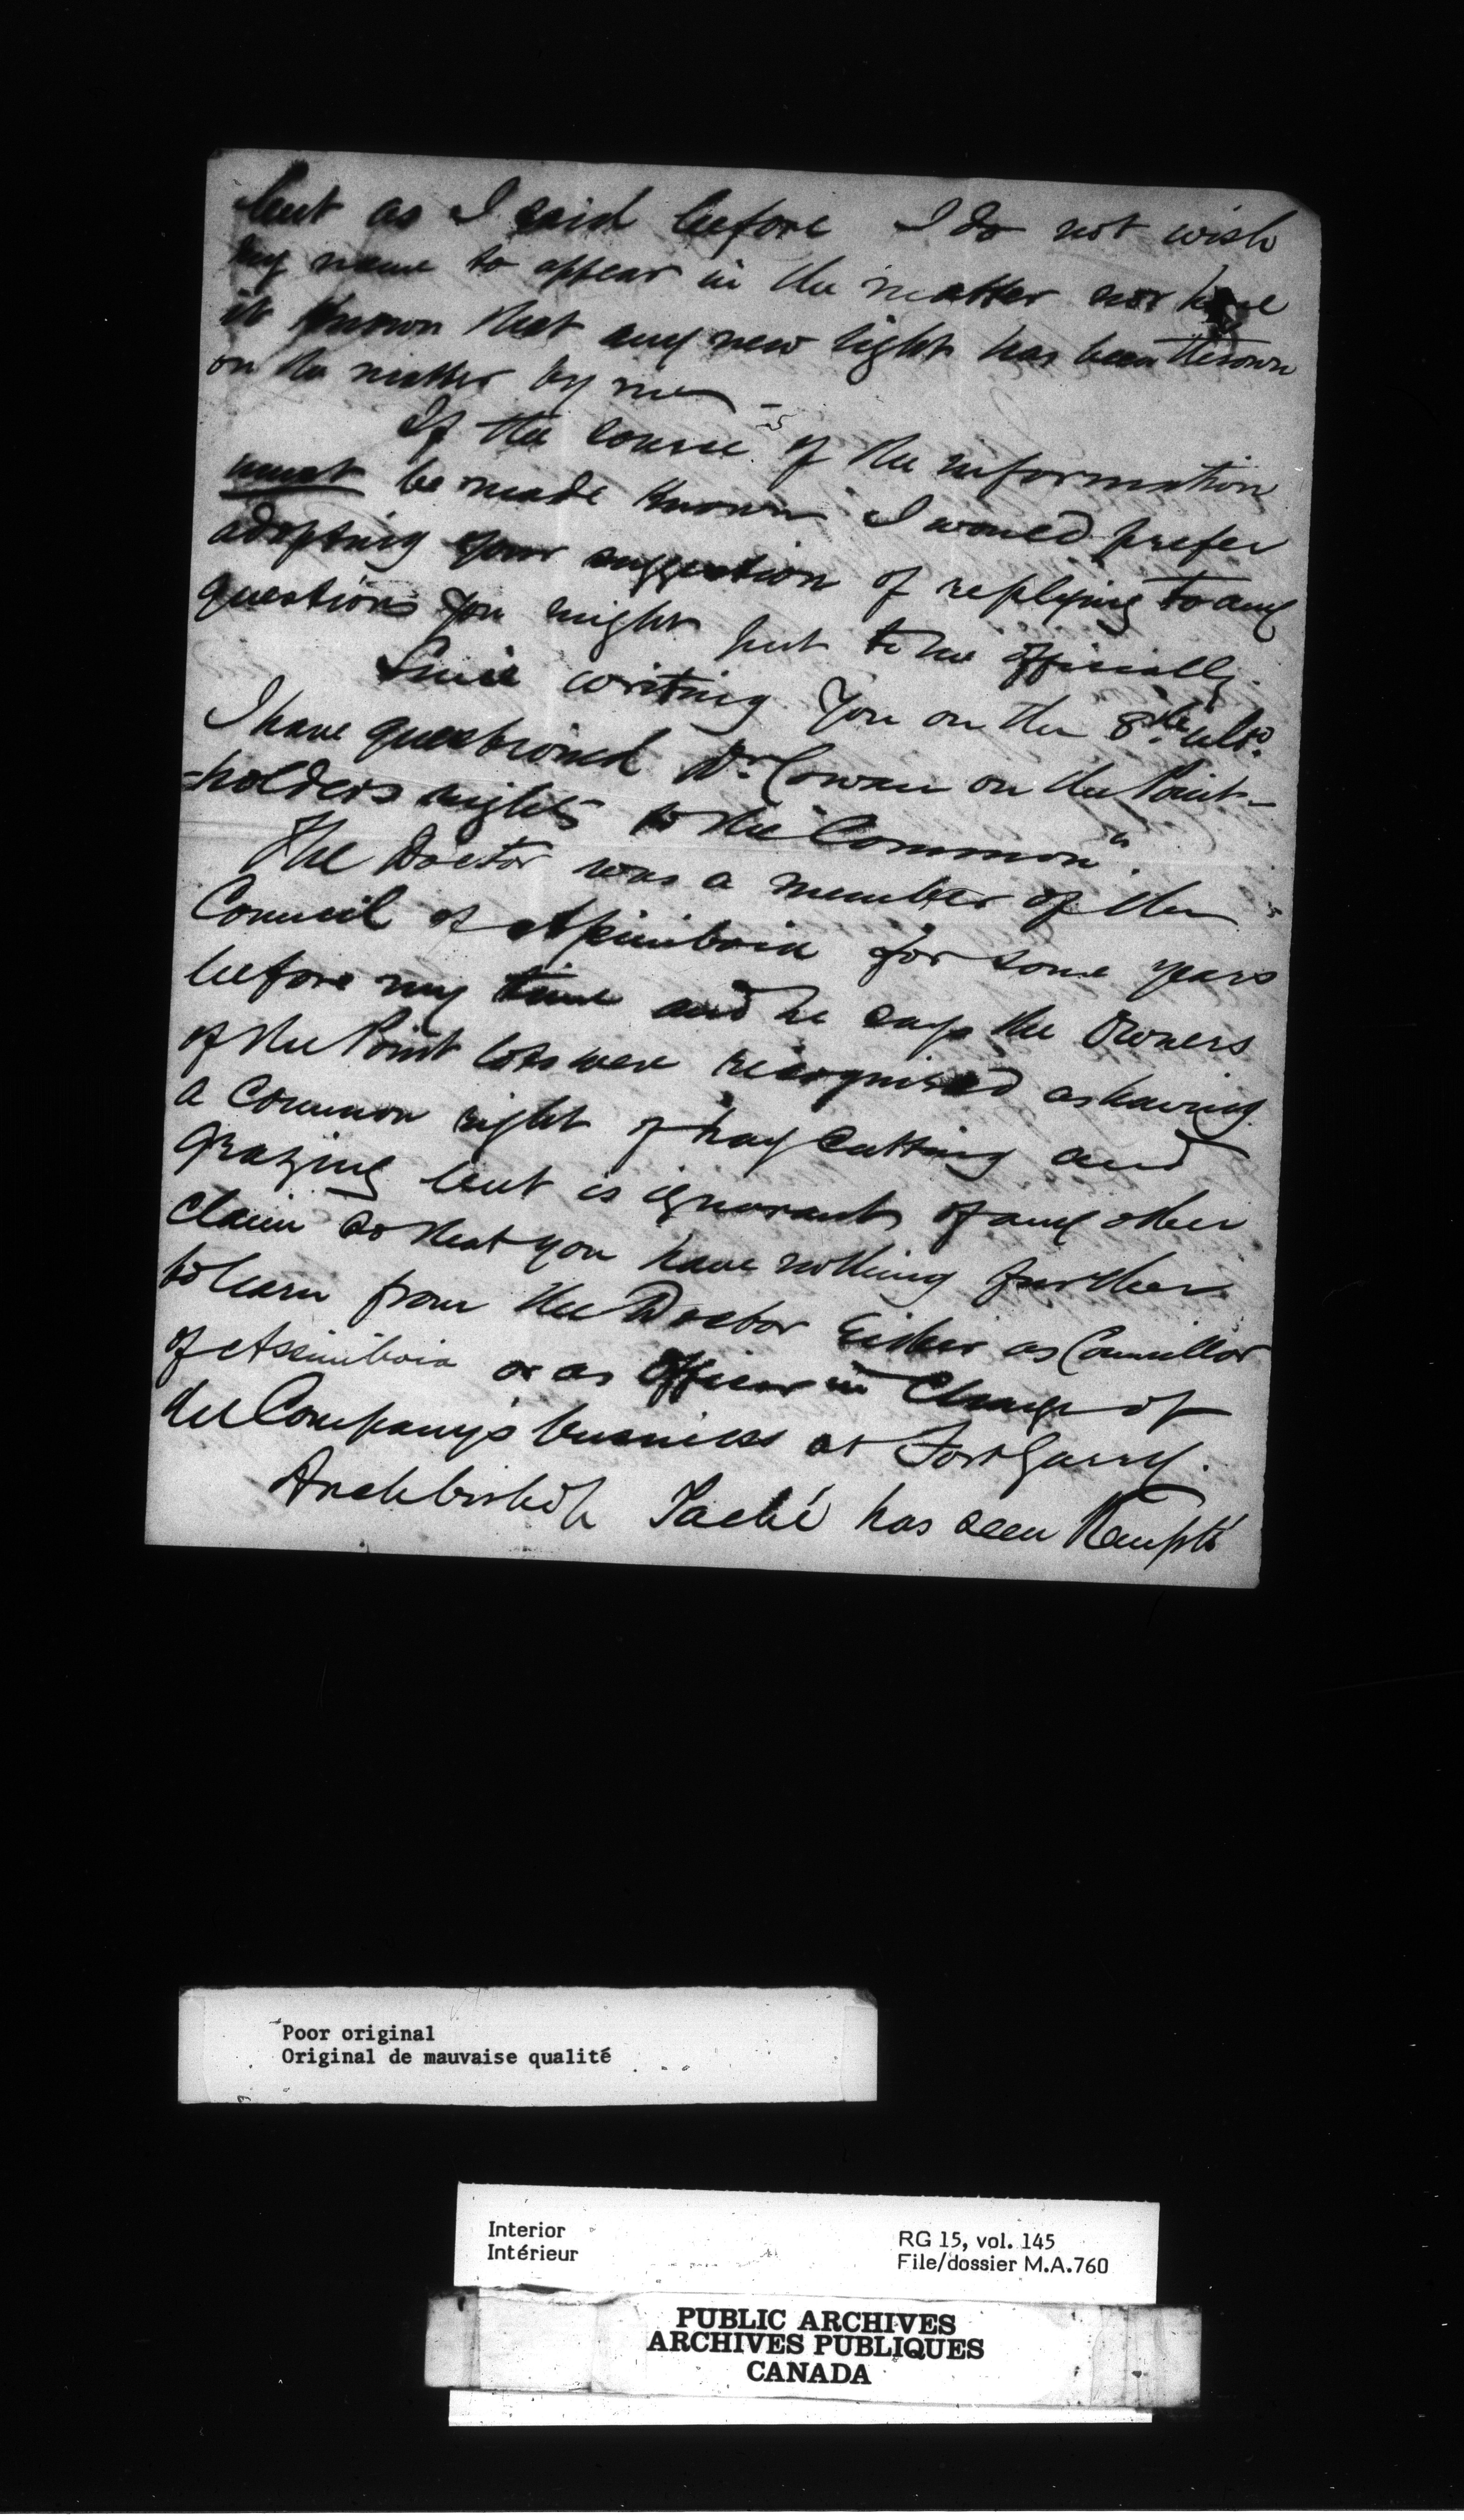 but as I said before I do not wish
my name to appear in the matter nor have
it known that any new light has been thrown
on the matter by me –
If the source of the information
must be made known I would prefer
adopting your suggestion of replying to any
questions you might put to me officially.
Since writing you on the 8th ulto.
I have questioned Dr. Cowan on the Point-
=holders rights to the "Common"
The Doctor was a member of the
Council of Assiniboia for some years
before my time and he says the Owners
of the Point lots were recognised as having
a Common right of hay cutting and
grazing but is ignorant of any other
claim so that you have nothing further
to learn from the Doctor Either as Councillor
of Assiniboia or as Officer in Charge of
the Company's business at Fort Garry.
Archbishop Taché has seen
Poor original
Original de mauvaise qualité
Interior
Intérieur
RG 15, vol. 145
File/dossier M.A.760
PUBLIC ARCHIVES
ARCHIVES PUBLIQUES
CANADA